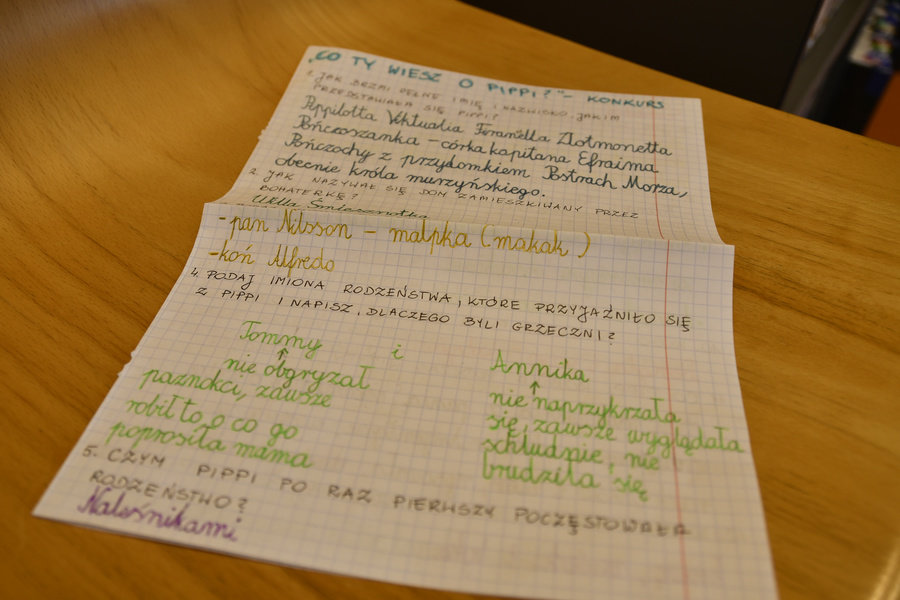 „CO TY WIESZ O PIPPI?" - KONKURS
1. JAK BRZMI PEŁNE IMIĘ I NAZWISKO, JAKIM
PRZEDSTAWIAŁA SIĘ PIPPI?
Pippilotta Viktualia Firandella Złotmonetta
Pończoszanka - córka kapitana Efraima
Pończochy z przydomkiem Postrach Morza,
obecnie króla murzyńskiego.
2. JAK NAZYWAŁ SIĘ DOM ZAMIESZKIWANY PRZEZ
BOHATERKĘ?
Willa Śmiesznotka
- pan Nilsson - małpka (makak)
- koń Alfredo
4. PODAJ IMIONA RODZEŃSTWA, KTÓRE PRZYJAŹNIŁO SIĘ
Z PIPPI I NAPISZ, DLACZEGO BYLI GRZECZNI?
Tommy i Annika
nie obgryzał
paznokci, zawsze
robił to, o co go
poprosiła mama
nie naprzykrzała
się, zawsze wyglądała
schludnie, nie
brudziła się
5. CZYM PIPPI PO RAZ PIERWSZY POCZĘSTOWAŁA
RODZEŃSTWO?
Naleśnikami